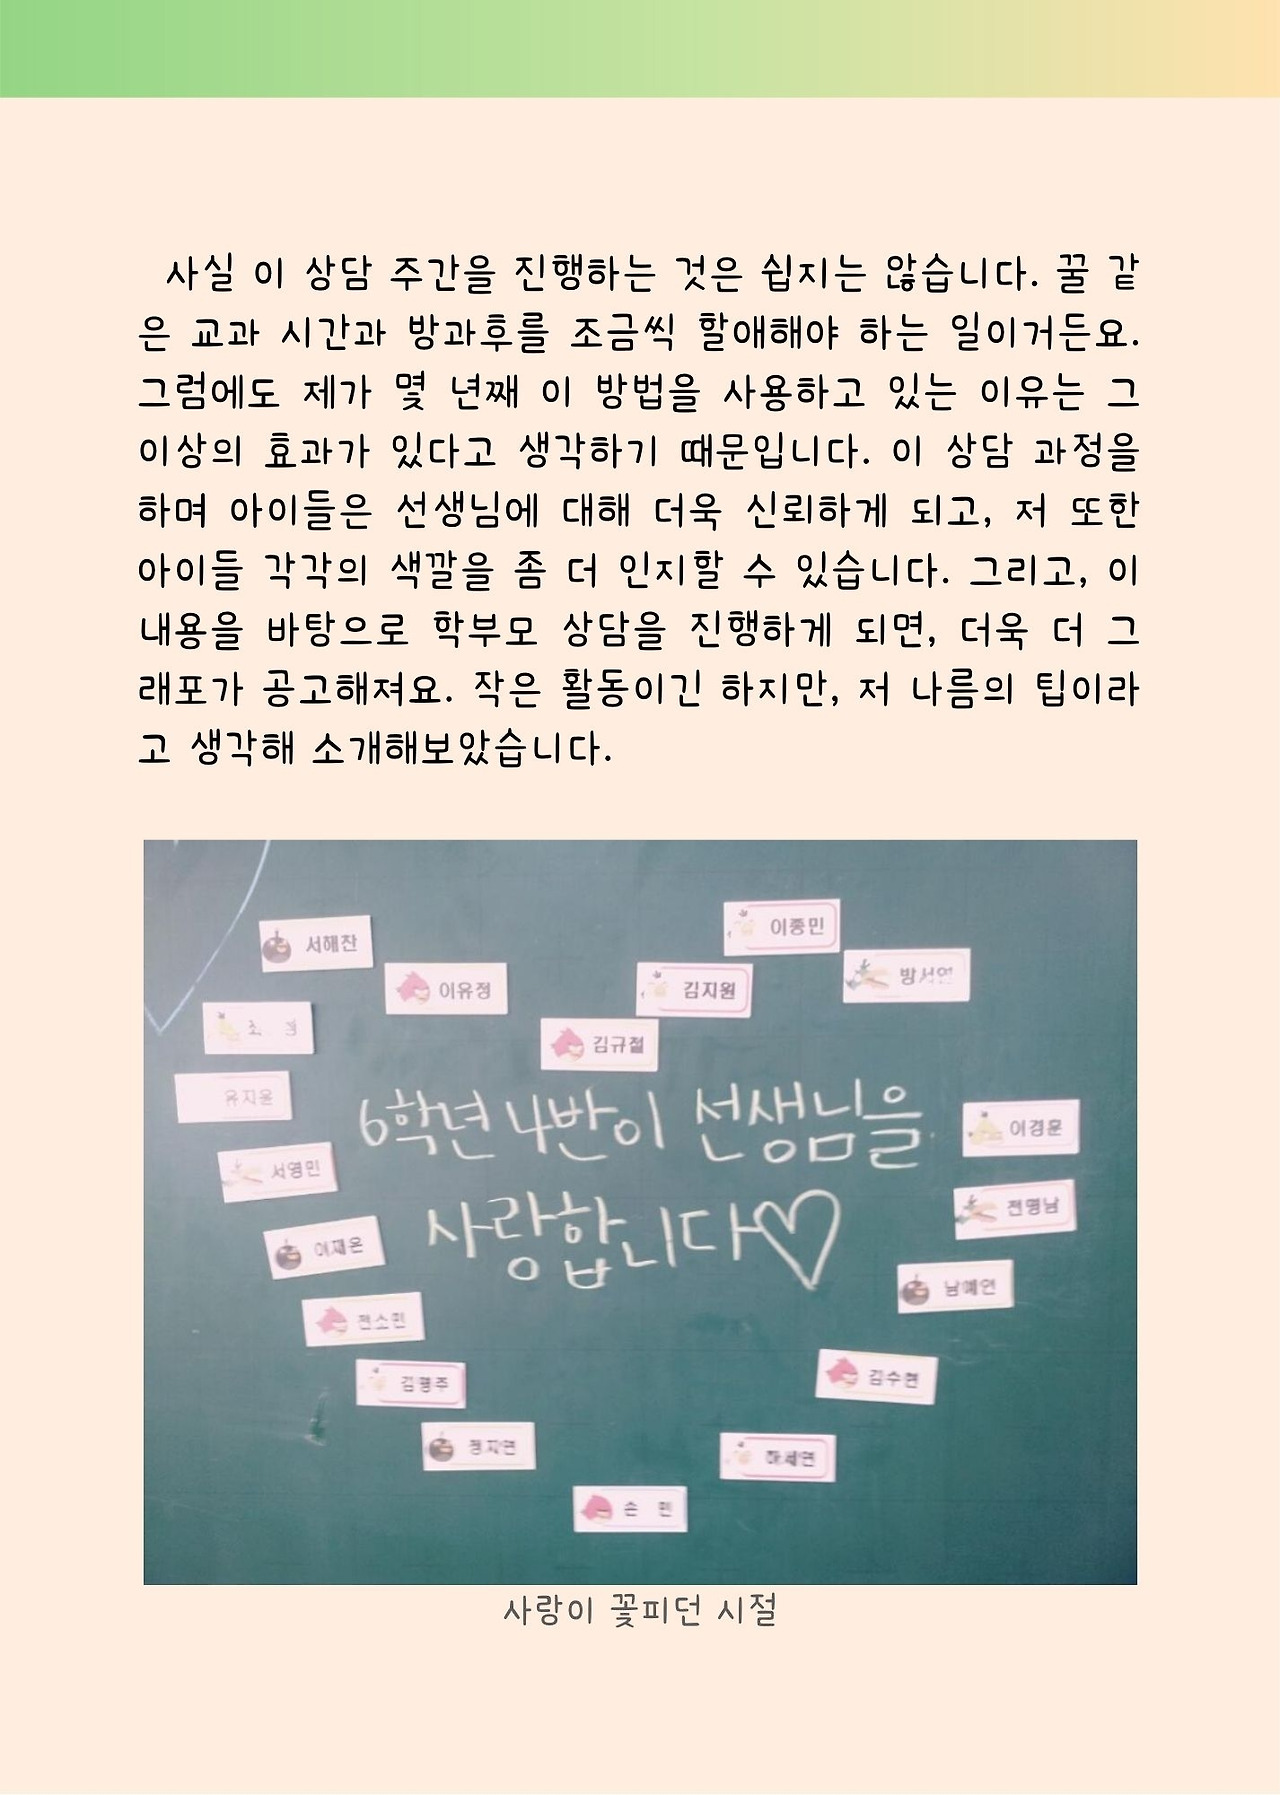 사실 이 상담 주간을 진행하는 것은 쉽지는 않습니다. 꿀 같
은 교과 시간과 방과후를 조금씩 할애해야 하는 일이거든요.
그럼에도 제가 몇 년째 이 방법을 사용하고 있는 이유는 그
이상의 효과가 있다고 생각하기 때문입니다. 이 상담 과정을
하며 아이들은 선생님에 대해 더욱 신뢰하게 되고, 저 또한
아이들 각각의 색깔을 좀 더 인지할 수 있습니다. 그리고, 이
내용을 바탕으로 학부모 상담을 진행하게 되면, 더욱 더 그
래포가 공고해져요. 작은 활동이긴 하지만, 저 나름의 팁이라
고 생각해 소개해보았습니다.
이종민
서해찬
방서연
이유정
김지원
김규절
유지윤
6학년 4반이 선생님을
이경훈
서영민
전명남
사랑합니다♡
이재온
남예연
전소민
김수현
김평주
정지연
하세연
손 민
사랑이 꽃피던 시절